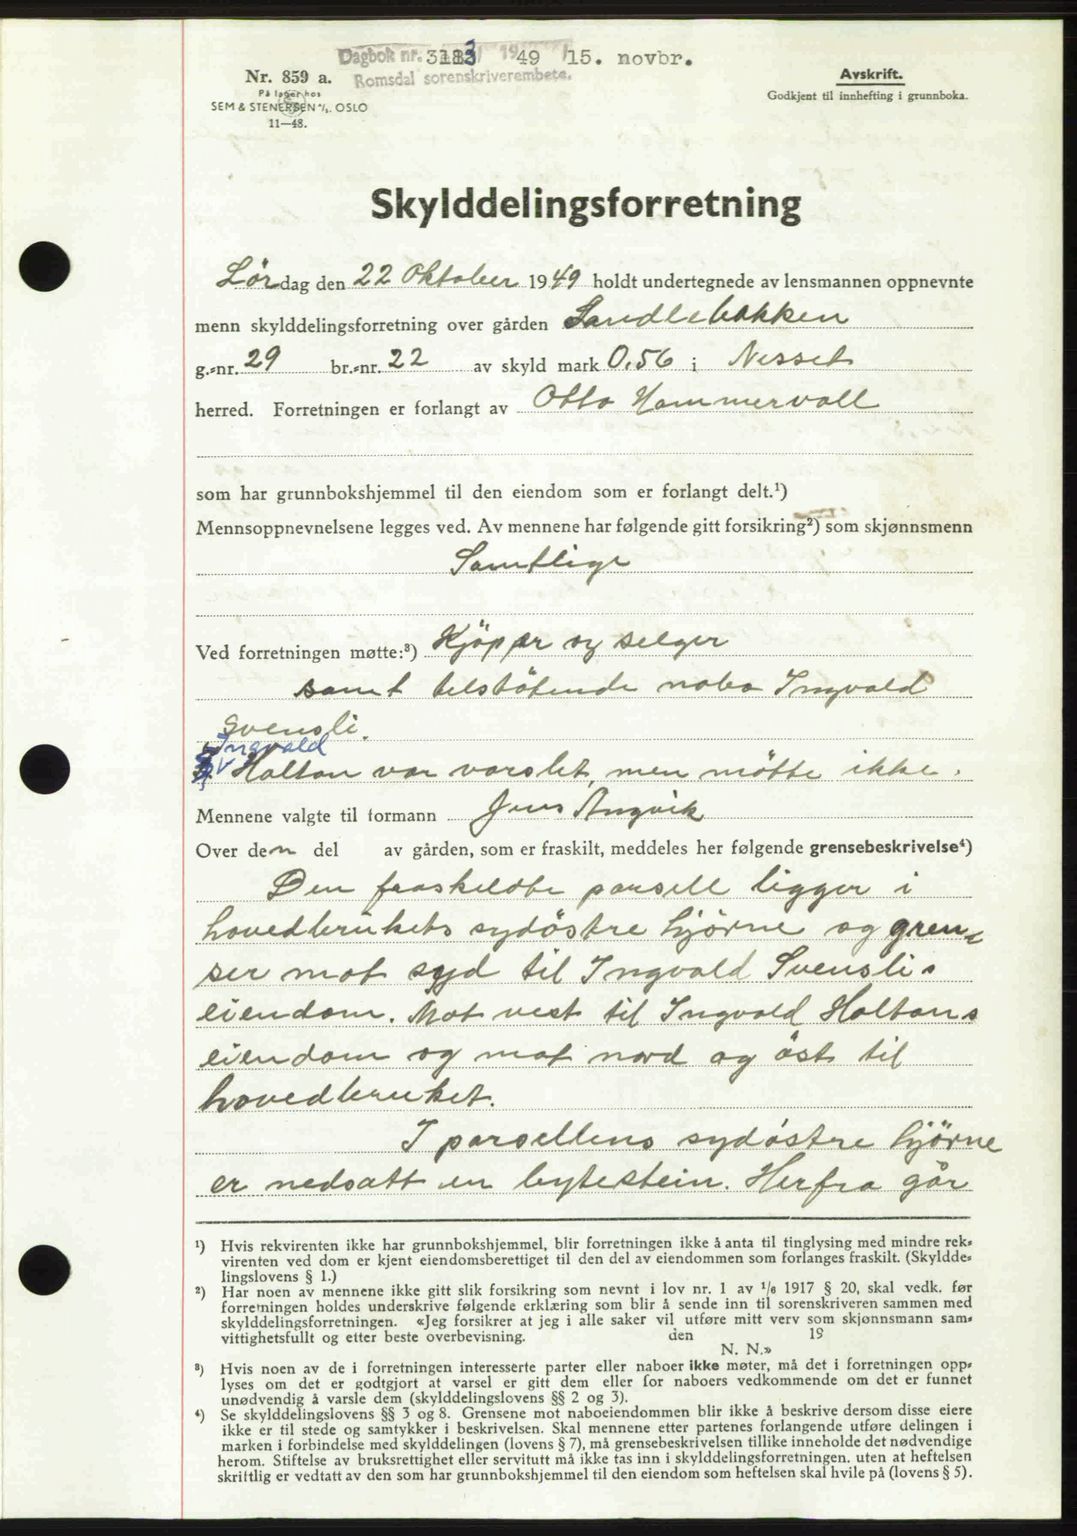 Dagbok nr. 3183 1949 15. novbr.
Romsdal sorenskriverembete.
Nr. 859 a.
På lager hos
SEM & STENERSEN A/S. OSLO
11—48.
Avskrift.
Godkjent til innhefting i grunnboka.
Skylddelingsforretning
Lördag den 22 Oktober 1949 holdt undertegnede av lensmannen oppnevnte
menn skylddelingsforretning over gården Sandlebakken
g.-nr. 29 br.-nr. 22 av skyld mark 0,56 i Nesset
herred. Forretningen er forlangt av Otto Hammervoll
som har grunnbokshjemmel til den eiendom som er forlangt delt.¹)
Mennsoppnevnelsene legges ved. Av mennene har følgende gitt forsikring²) som skjønnsmenn
Samtlige
Ved forretningen møtte:³) Kjöper og selger
samt tilstötende nabo Ingvald
Svensli.
Ingvald
Holtan var varslet, men mötte ikke.
Mennene valgte til formann Jens Angvik
Over den del av gården, som er fraskilt, meddeles her følgende grensebeskrivelse⁴)
Den fraskildte parsell ligger i
hovedbrukets sydöstre hjörne og gren-
ser mot syd til Ingvald Svenslis
eiendom. Mot vest til Ingvald Holtans
eiendom og mot nord og öst til
hovedbruket.
I parsellens sydöstre hjörne
er nedsatt en bytestein. Herfra går
¹) Hvis rekvirenten ikke har grunnbokshjemmel, blir forretningen ikke å anta til tinglysing med mindre rek-
virenten ved dom er kjent eiendomsberettiget til den del av eiendommen som forlanges fraskilt. (Skyldde-
lingslovens § 1.)
²) Har noen av mennene ikke gitt slik forsikring som nevnt i lov nr. 1 av 1/6 1917 § 20, skal vedk. før
forretningen holdes underskrive følgende erklæring som blir å sende inn til sorenskriveren sammen med
skylddelingsforretningen. «Jeg forsikrer at jeg i alle saker vil utføre mitt verv som skjønnsmann sam-
vittighetsfullt og etter beste overbevisning. den 19
N. N.»
³) Hvis noen av de i forretningen interesserte parter eller naboer ikke møter, må det i forretningen opp-
lyses om det er godtgjort at varsel er gitt dem eller for naboers vedkommende om det er funnet
unødvendig å varsle dem (skylddelingslovens §§ 2 og 3).
⁴) Se skylddelingslovens §§ 3 og 8. Grensene mot naboeiendommen blir ikke å beskrive dersom disse eiere
ikke er til stede og samtykker i beskrivelsen. Skal mennene etter partenes forlangende utføre delingen i
marken i forbindelse med skylddelingen (lovens § 7), må grensebeskrivelsen tillike inneholde det nødvendige
herom. Stiftelse av bruksrettighet eller servitutt må ikke tas inn i skylddelingsforretningen. uten at heftelsen
skriftlig er vedtatt av den som har grunnbokshjemmel til den eiendom som heftelsen skal hvile på (lovens § 5).